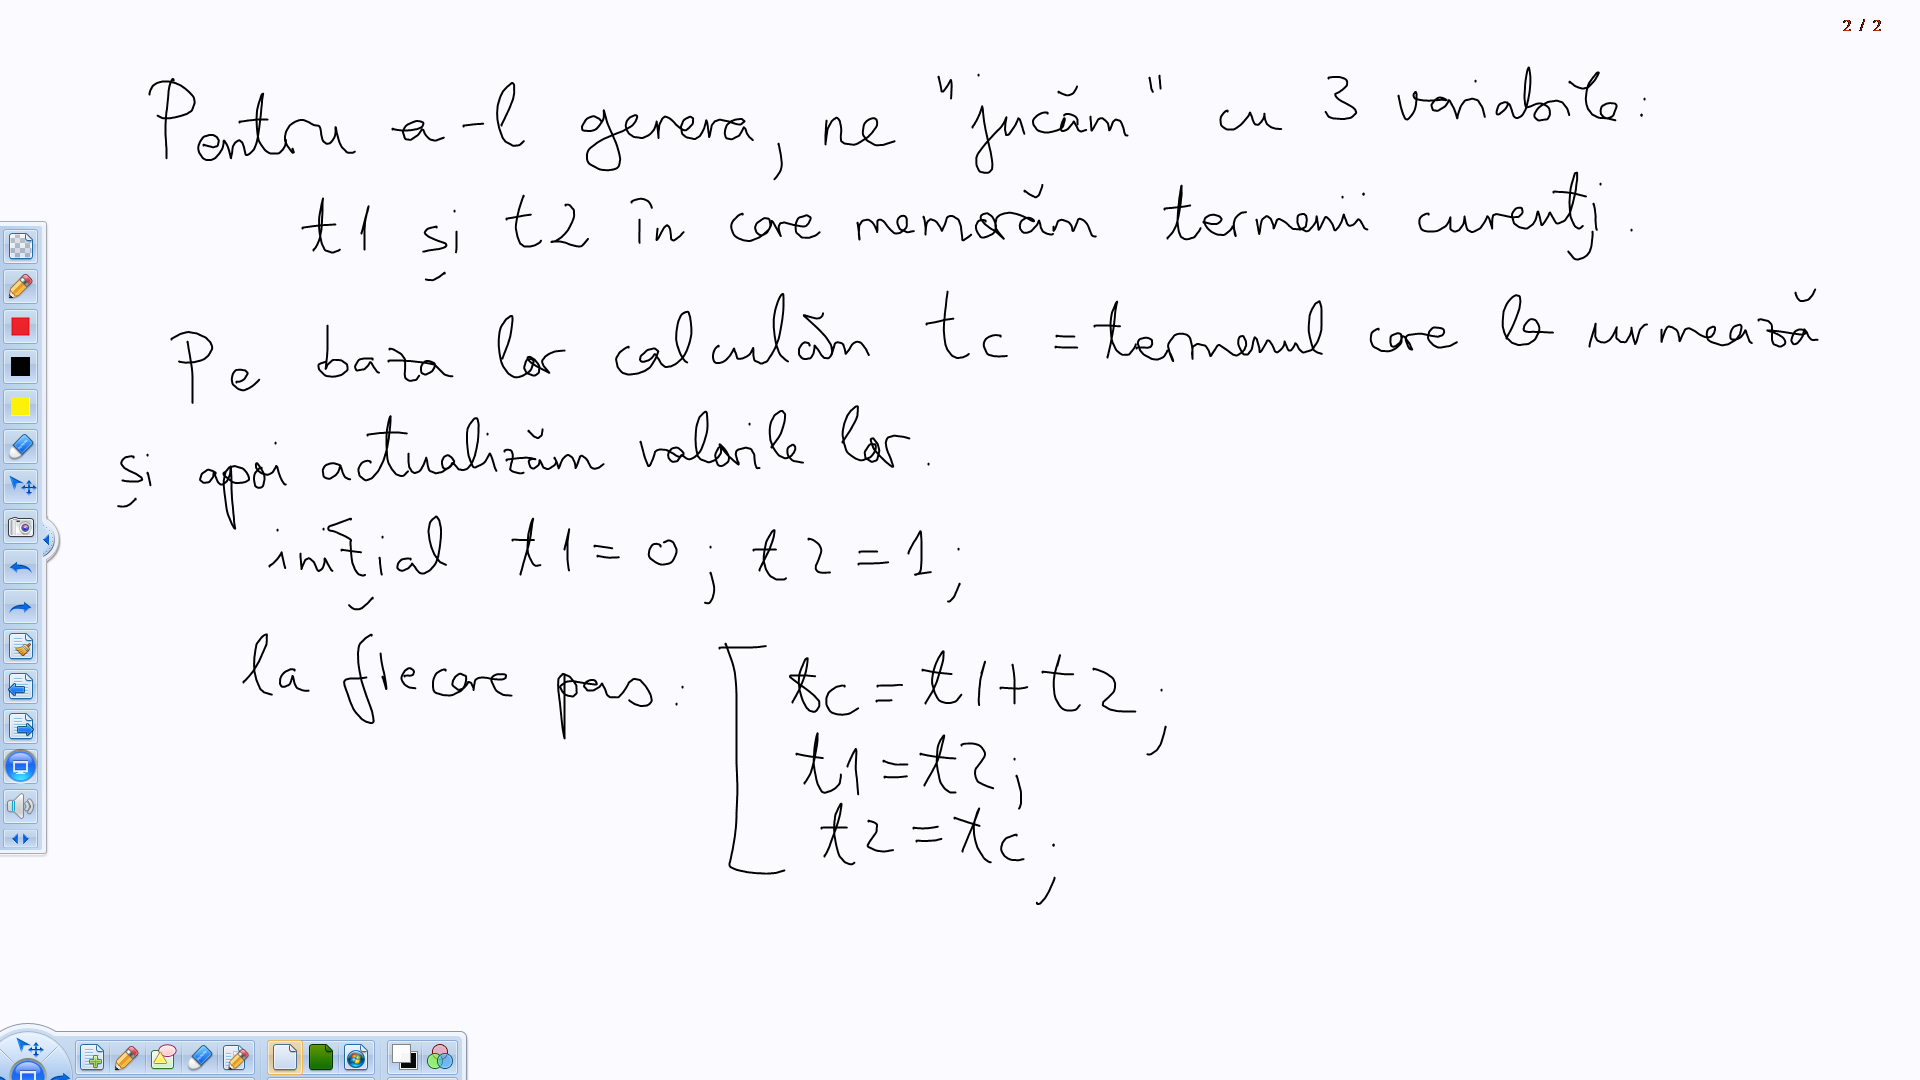 2 / 2
Pentru a-l genera, ne "jucăm" cu 3 variabile:
t1 și t2 în care memorăm termenii curenți.
Pe baza lor calculăm tc = termenul care le urmează
și apoi actualizăm valorile lor.
inițial t1 = 0; t2 = 1;
la fiecare pas: tc = t1 + t2;
t1 = t2;
t2 = tc;